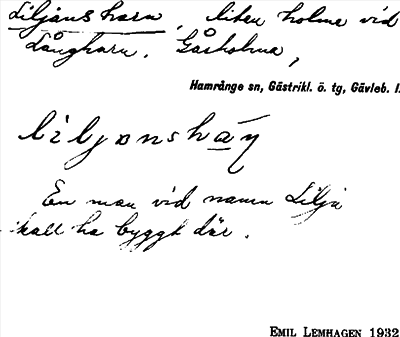 Liljansharn, liten holme vid
Långharn. Gåsholma,
Hamrånge sn, Gästrikl. ö. tg, Gävleb. l.
En man vid namn Lilja
skall ha byggt där.
EMIL LEMHAGEN 1932